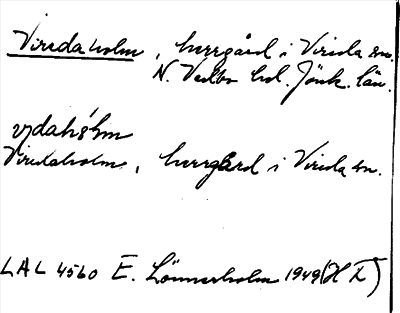 Viredaholm, herrgård i Vireda sn.
N. Vedbo hd. Jönk. län.
Viredaholm, herrgård i Vireda sn.
LAL 4560 E. Lönnerholm 1949